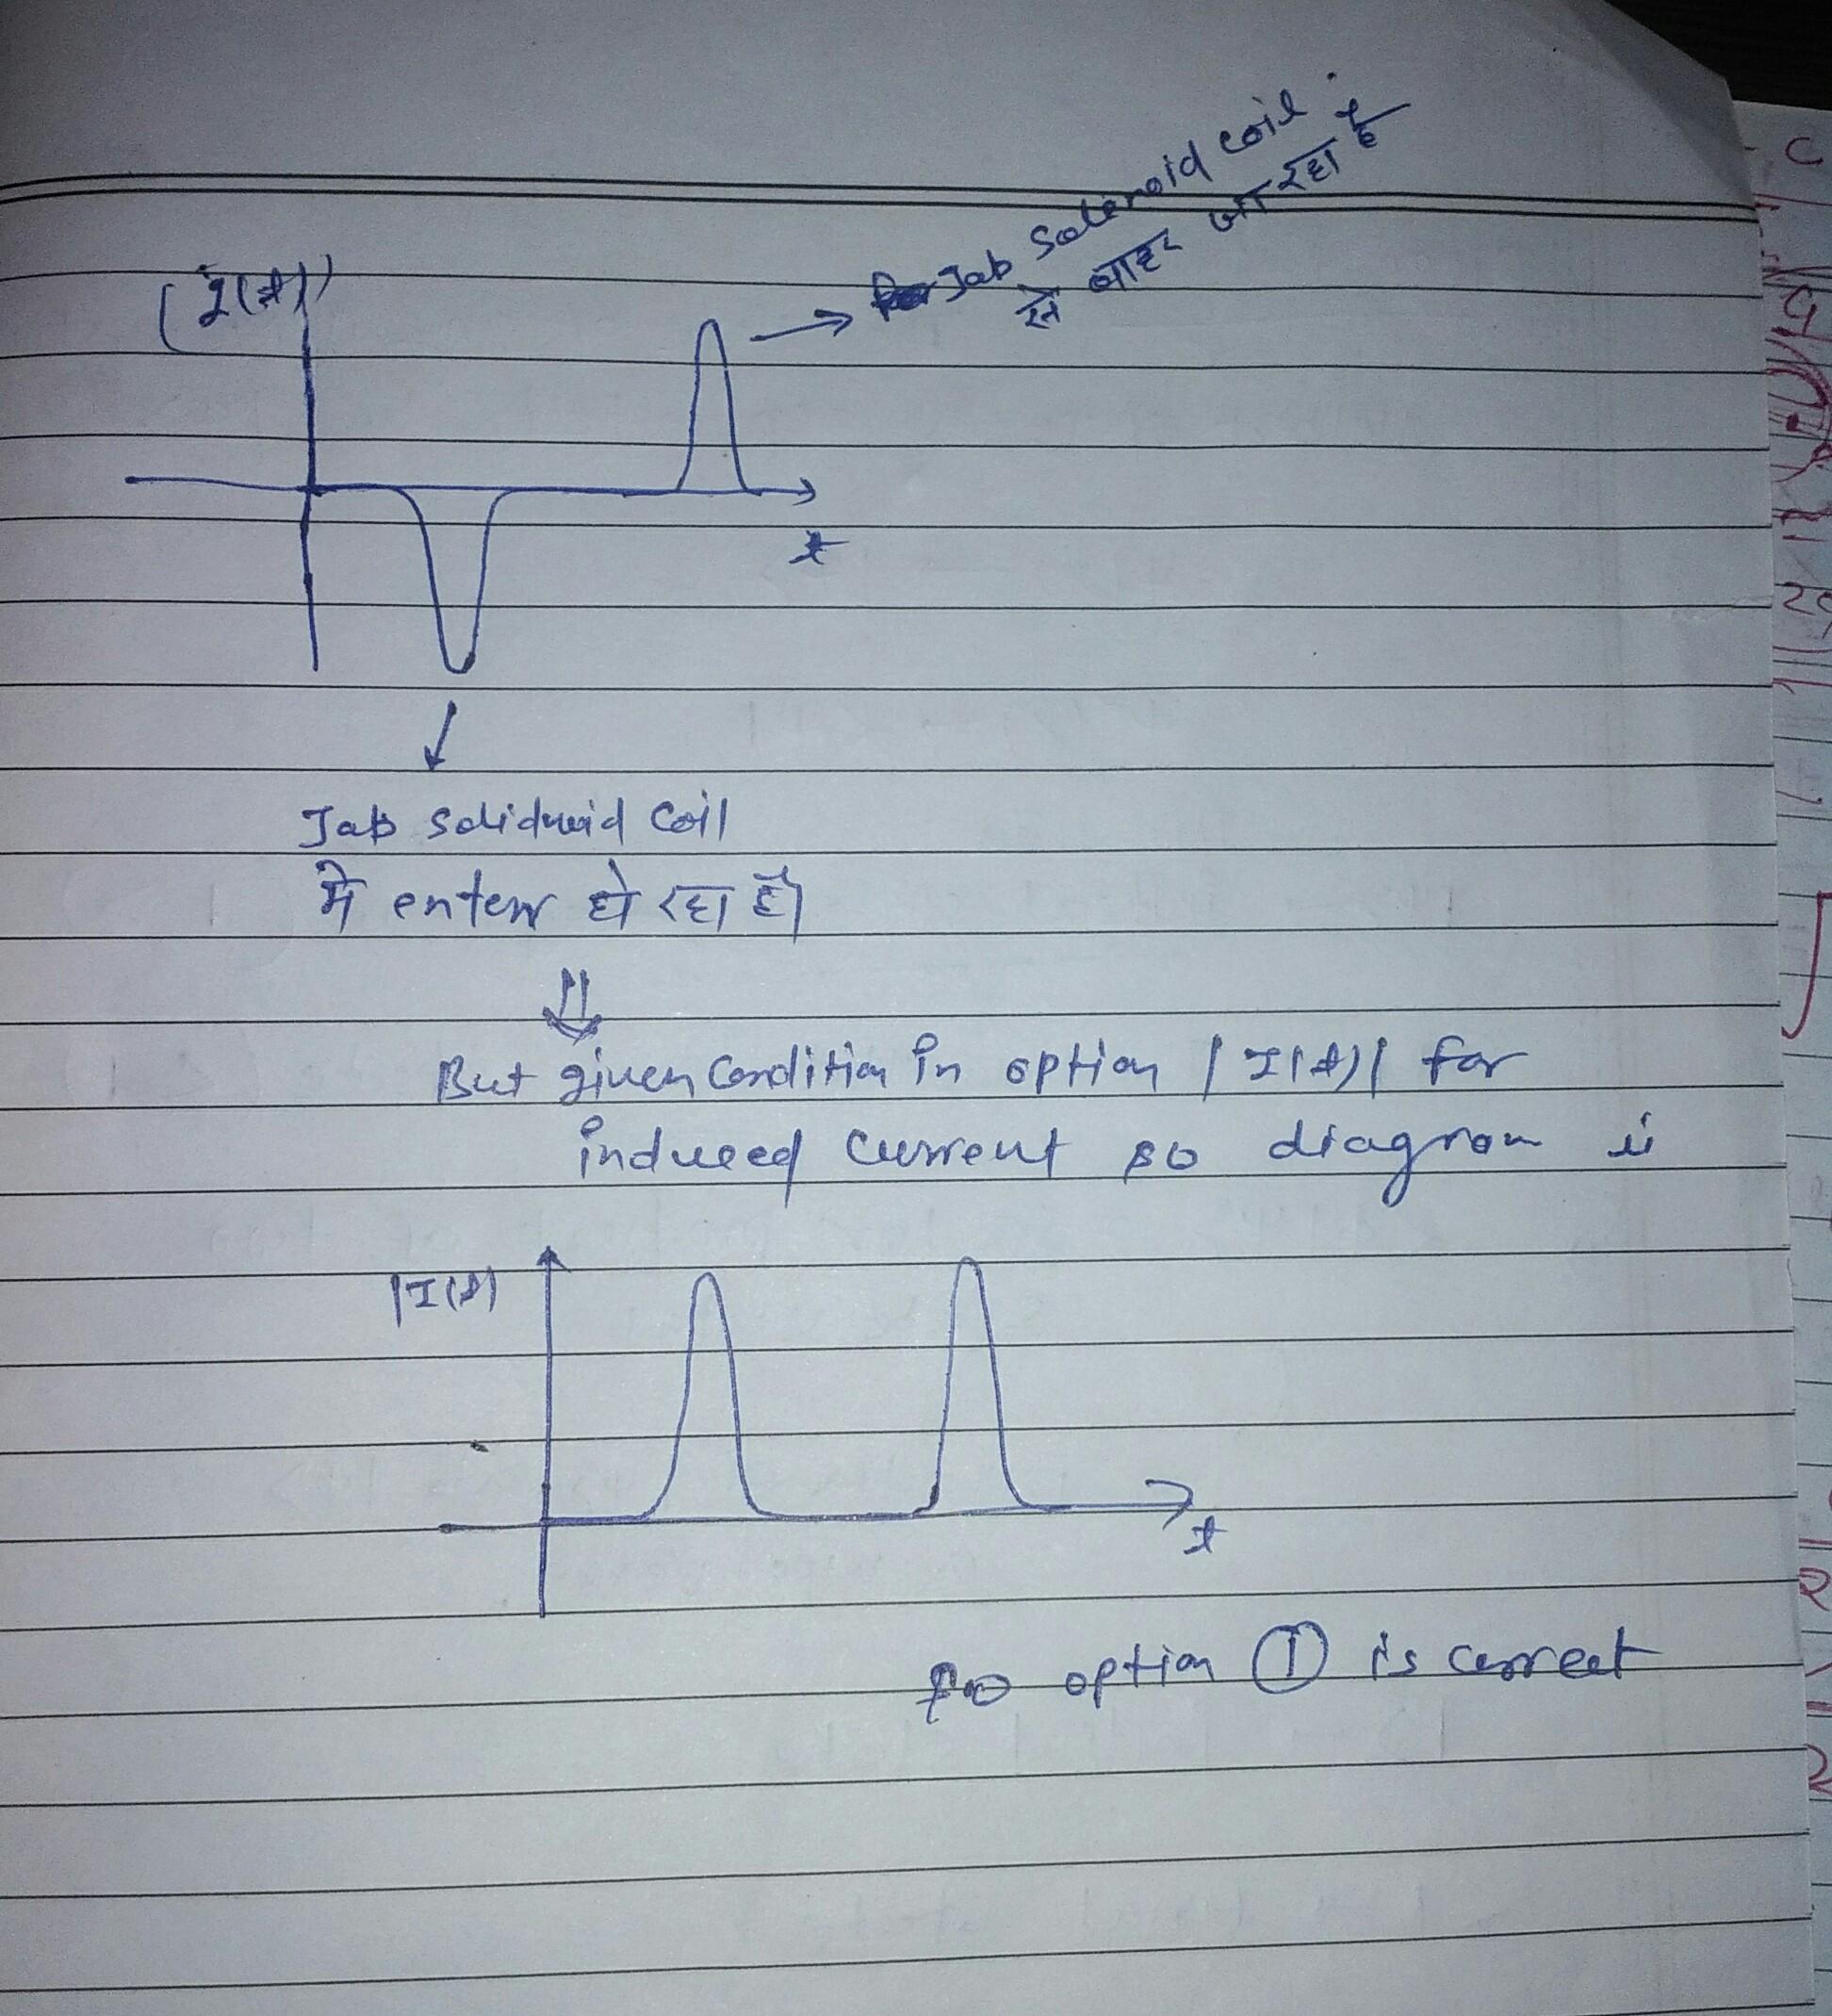 I(t)
Jab Solenoid coil
से बाहर जा रहा है
t
Jab Solidnoid Coil
मे enter हो रहा है।
⇓
But given Condition in option |I(t)| for
induced current so diagram is
|I(t)
t
so option ① is correct